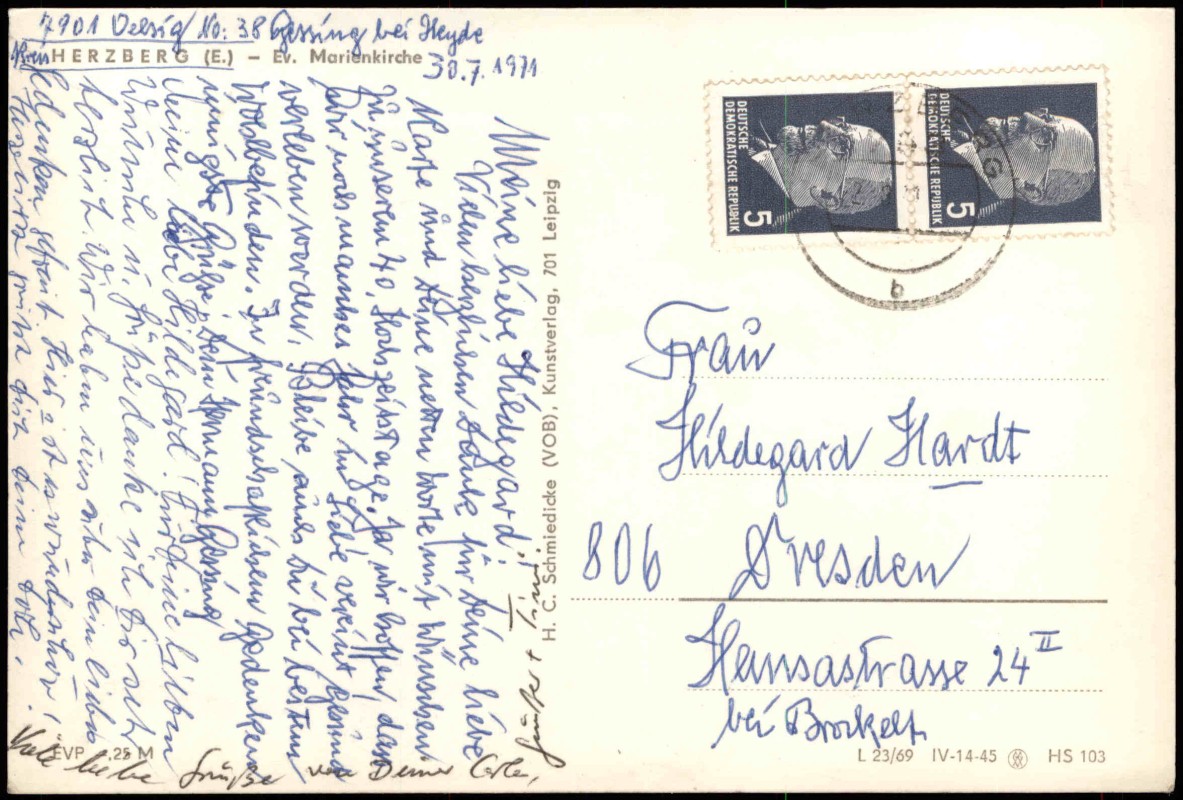 7901 Oelsig No: 38 Gessing bei Heyde
Kreis HERZBERG (E.) – Ev. Marienkirche
30.7.1971
Meine liebe Hildegard!
Vielen herzlichen Dank für Deine liebe
Karte und Deine netten Worte mit Wünschen
zu unserem 40. Hochzeitstage. Ja wir hoffen, dass
wir noch manches Jahr in Liebe vereint gesund
verleben werden. Bleibe auch Du bei bestem
Wohlbefinden. In freundschaftlichem Gedenken
innigste Grüße, Dein Hermann Gessing
Meine liebe Hildegard! Für Deine lieben
Wünsche u. Grüße danke ich Dir sehr
herzlich. Wir haben uns über Dein liebes
Gedenken gefreut. Hier ist es wunderbar!
grüßt Dich Deine
Viele liebe Grüße von Deiner
H. C. Schmiedicke (VOB), Kunstverlag, 701 Leipzig
EVP –.25 M
DEUTSCHE
DEMOKRATISCHE REPUBLIK
5
DEUTSCHE
DEMOKRATISCHE REPUBLIK
5
b
Frau
Hildegard Hardt
806 Dresden
Hansastrasse 24 II
bei Brockelt
L 23/69 IV-14-45 HS 103